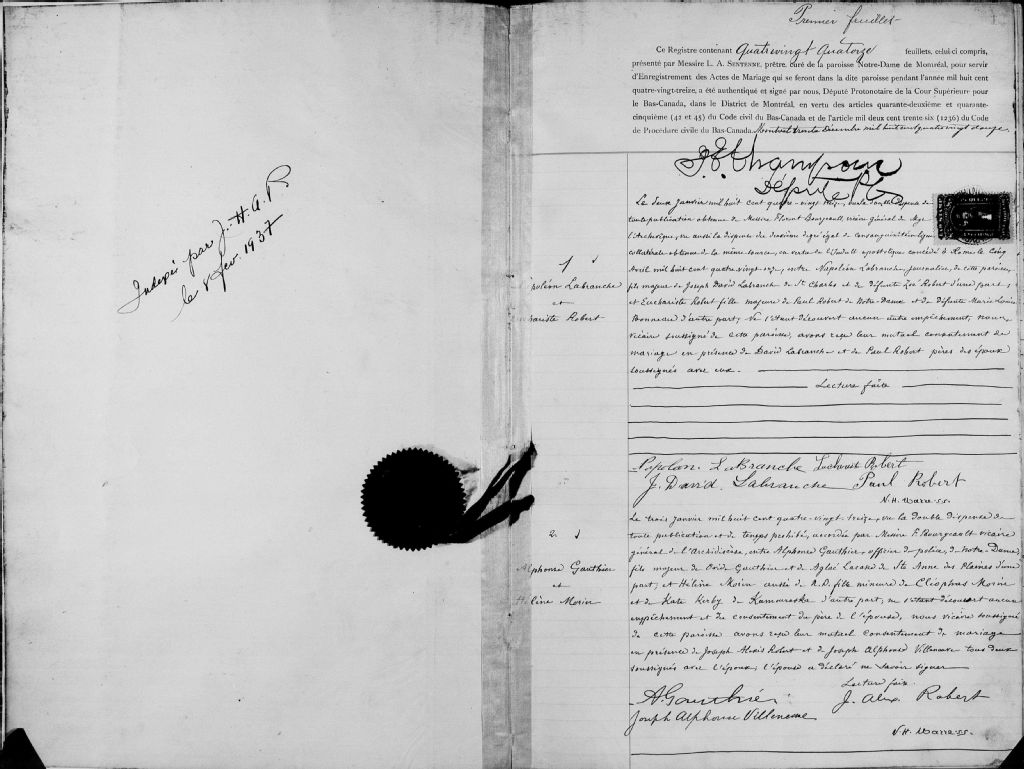 Indexé par J.-H. A. R.
le 8 fev. 1937
Premier feuillet
Ce Registre contenant Quatrevingt Quatorze feuillets, celui-ci compris,
présenté par Messire L. A. SENTENNE, prêtre, curé de la paroisse Notre-Dame de Montréal, pour servir
d'Enregistrement des Actes de Mariage qui se feront dans la dite paroisse pendant l'année mil huit cent
quatre-vingt-treize, a été authentiqué et signé par nous, Député Protonotaire de la Cour Supérieure pour
le Bas-Canada, dans le District de Montréal, en vertu des articles quarante-deuxième et quarante-
cinquième (42 et 45) du Code civil du Bas-Canada et de l'article mil deux cent trente six (1236) du Code
de Procédure civile du Bas-Canada. Montréal trente Décembre mil huit cent quatre vingt douze
Député P.
1
poléon Labranche
et
hariste Robert
Le deux Janvier mil huit cent quatre-vingt treize, vu la double dispense de
toute publication obtenue de Messire Florent Bourgeault, vicaire général de Mgr
l'Archevêque, vu aussi la dispense du deuxième degré égal de consanguinité en ligne
collatérale obtenue de la même source, en vertu de l'Indult apostolique concédé à Rome le cinq
Avril mil huit cent quatre vingt onze, entre Napoléon Labranche, journalier, de cette paroisse,
fils majeur de Joseph David Labranche de St Charles et de défunte Zoé Robert d'une part;
et Euchariste Robert fille majeure de Paul Robert de Notre-Dame et de défunte Marie Louise
Bonneau d'autre part; Ne s'étant découvert aucun autre empêchement, nous,
vicaire soussigné de cette paroisse, avons reçu leur mutuel consentement de
mariage en présence de David Labranche et de Paul Robert pères des époux
soussignés avec eux.
Lecture faite
LaBranche Robert
J. David Labranche Paul Robert
N. H. Marre s.s.
2
Alphonse Gauthier
et
Hélène Morin
Le trois Janvier mil huit cent quatre-vingt-treize, vu la double dispense de
toute publication et de temps prohibé, accordée par Messire F. Bourgeault vicaire
général de l'Archidiocèse, entre Alphonse Gauthier, officier de police, de Notre-Dame,
fils majeur de Ovide Gauthier et de Aglaé Lacasse de Ste Anne des Plaines d'une
part; et Hélène Morin aussi de N.D. fille mineure de Cléophas Morin
et de Kate Kirby de Kamouraska d'autre part; ne s'étant découvert aucun
empêchement et du consentement du père de l'épouse, nous vicaire soussigné
de cette paroisse avons reçu leur mutuel consentement de mariage
en présence de Joseph Alexis Robert et de Joseph Alphonse Villeneuve tous deux
soussignés avec l'époux; l'épouse a déclaré ne savoir signer
Lecture faite.
A Gauthier J. Alex Robert
Joseph Alphonse Villeneuve
N. H. Marre s.s.